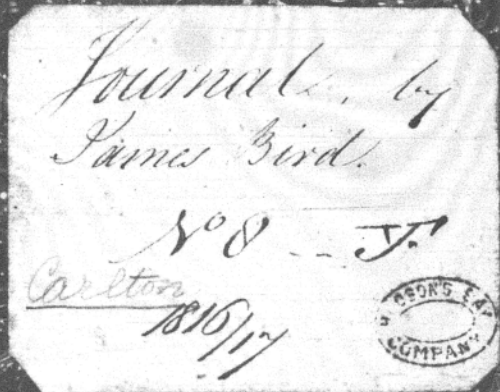 Journal, by
James Bird.
No 8
Carlton
1816/17
HUDSON'S BAY
COMPANY